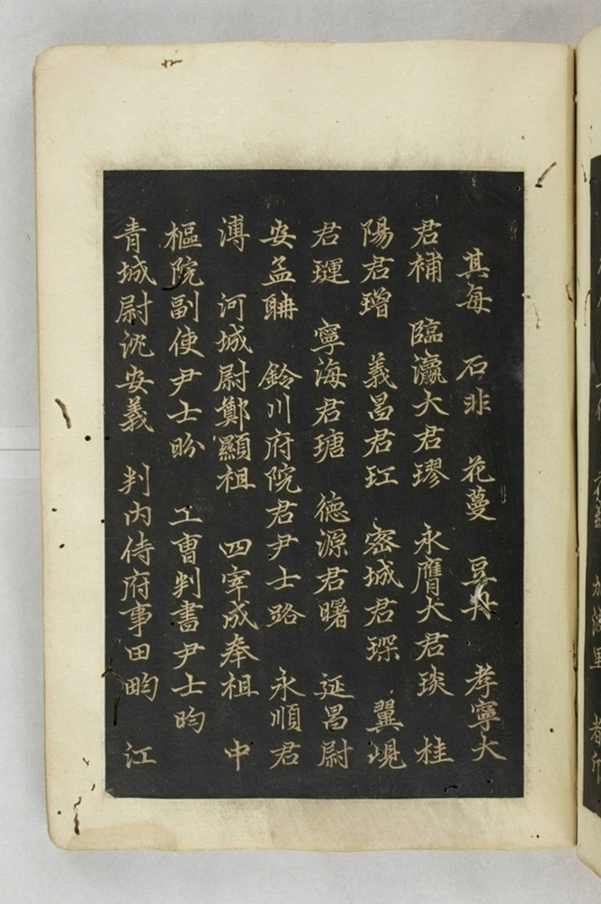 其每 石非 花蔓 豆 孝寧大
君補 臨瀛大君璆 永膺大君琰 桂
陽君璔 義昌君玒 密城君琛 翼峴
君璭 寧海君瑭 德源君曙 延昌尉
安孟聃 鈴川府院君尹士路 永順君
溥 河城尉鄭顯祖 四宰成奉祖 中
樞院副使尹士昐 工曹判書尹士昀
青城尉沈安義 判內侍府事田畇 江